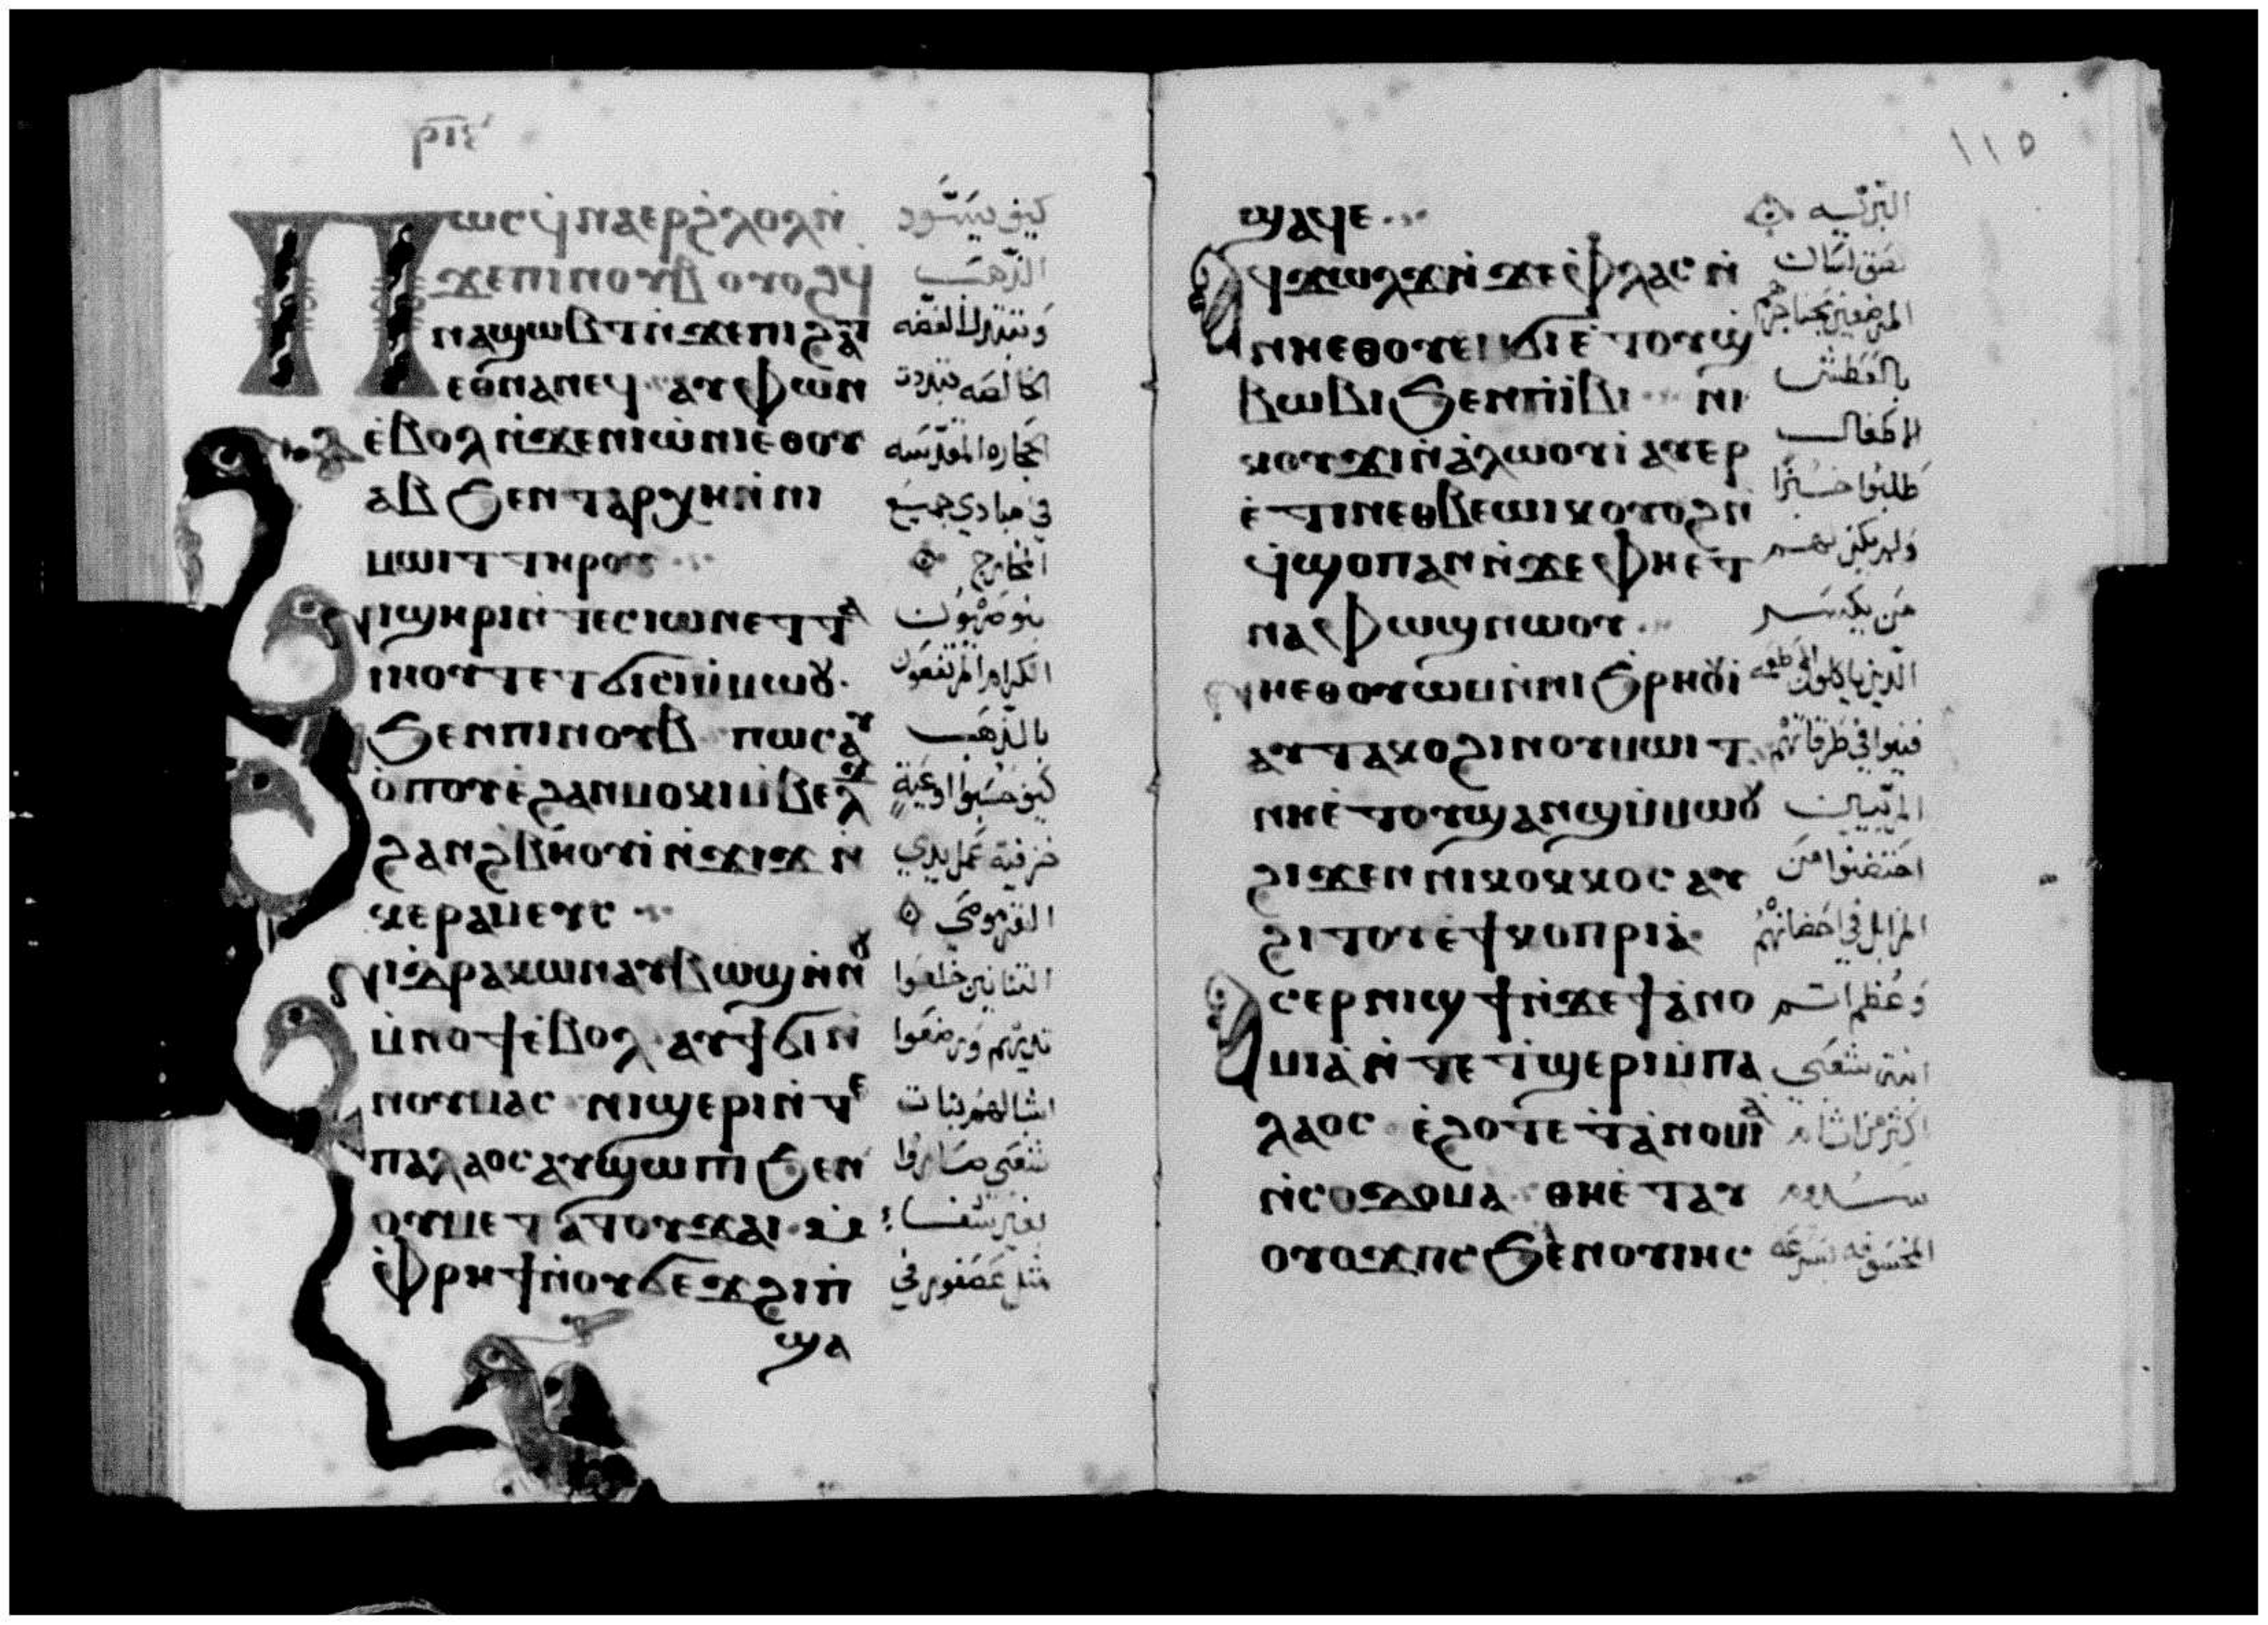 ⲣⲓⲉ
Ⲡⲱⲥ ϥ̀ⲛⲁⲉⲣϩ̀ⲗⲟⲗ ⲛ̀
ϫⲉⲡⲓⲛⲟⲩⲃ ⲟⲩⲟϩ ϥ
ⲛⲁϣⲱⲃⲧ ⲛ̀ϫⲉⲡⲓϩⲁⲧ
ⲉⲑⲛⲁⲛⲉϥ ⲁⲩⲫⲱⲛ
ⲉ̀ⲃⲟⲗ ⲛ̀ϫⲉⲛⲓⲱⲛⲓ ⲉ̀ⲑⲟⲩ
ⲁⲃ ϧⲉⲛ ⲧⲁⲣⲭⲏ ⲛ̀ⲛⲓ
ⲙⲱⲓⲧ ⲧⲏⲣⲟⲩ
ⲛⲓϣⲏⲣⲓ ⲛ̀ⲧⲉⲥⲓⲱⲛ ⲉⲧⲧⲁ
ⲓⲏⲟⲩⲧ ⲉⲧϭⲓⲥⲓ ⲙ̀ⲙⲱⲟⲩ
ϧⲉⲛⲡⲓⲛⲟⲩⲃ ⲡⲱⲥ ⲁⲩ
ⲟ̀ⲡⲟⲩ ⲉ̀ϩⲁⲛⲙⲟⲕⲓ ⲙ̀ⲃⲉⲗϫ
ϩⲁⲛϩ̀ⲃⲏⲟⲩⲓ ⲛ̀ϫⲓϫ ⲛ̀
ⲕⲉⲣⲁⲙⲉⲩⲥ
ⲛⲓⲇⲣⲁⲕⲱⲛ ⲁⲩⲃⲱϣ ⲛ̀ⲛⲟⲩ
ⲙ̀ⲛⲟϯ ⲉ̀ⲃⲟⲗ ⲁⲩϯϭⲓ ⲛ̀
ⲛⲟⲩⲙⲁⲥ ⲛⲓϣⲉⲣⲓ ⲛ̀ⲧⲉ
ⲡⲁⲗⲁⲟⲥ ⲁⲩϣⲱⲡⲓ ϧⲉⲛ
ⲟⲩⲙⲉⲧⲁⲧⲟⲩϫⲁⲓ
ⲙ̀ⲫⲣⲏϯ ⲛ̀ⲟⲩϭⲉϫ ϩⲓⲡ̀
ϣⲁ
كيف يسّود
الذهب
وتتبدل الفضه
الخالصه تبددت
الحجاره المقدسه
في مبادي جميع
المخارج
بنو صهيون
الكرام المرتفعون
بالذهب
كيف حسبوا اوعية
خزفية عمل يدي
الفخراني
التنانين خلعوا
ثديهم وارضعوا
اشبالهم بنات
شعبي صاروا
بغير شفاء
مثل عصفور في
١١٥
ϣⲁϥⲉ
ⲁϥϫⲱⲗϫ ⲛ̀ϫⲉⲫⲗⲁⲥ ⲛ̀
ⲛⲏⲉⲑⲟⲩⲉⲙϭⲓ ⲉ̀ⲧⲟⲩϣ
ⲃⲱⲃⲓ ϧⲉⲛⲡⲓⲓ̀ⲃⲓ ⲛⲓ
ⲕⲟⲩϫⲓ ⲛ̀ⲁ̀ⲗⲱⲟⲩⲓ̀ ⲁⲩⲉⲣ
ⲉ̀ⲧⲓⲛ ⲉⲑⲃⲉⲱⲓⲕ ⲟⲩⲟϩ ⲛ̀
ϥ̀ϣⲟⲡ ⲁⲛ ⲛ̀ϫⲉⲫⲏⲉⲧ
ⲛⲁⲫⲱϣ ⲛⲱⲟⲩ
ⲛⲏⲉⲑⲟⲩⲱⲙ ⲛ̀ⲛⲓϧ̀ⲣⲏⲟⲩⲓ̀
ⲁⲩⲧⲁⲕⲟ ϩⲓⲛⲟⲩⲙⲱⲓⲧ
ⲛⲏⲉ̀ⲧⲟⲩϣⲁⲛϣ ⲙ̀ⲙⲱⲟⲩ
ϩⲓϫⲉⲛ ⲛⲓⲕⲟⲕⲕⲟⲥ ⲁⲩ
ϩⲓⲧⲟⲩ ⲉ̀ϯⲕⲟⲡⲣⲓⲁ̀
ⲁⲥⲉⲣⲛⲓϣϯ ⲛ̀ϫⲉϯⲁ̀ⲛⲟ
ⲙⲓⲁ̀ ⲛ̀ⲧⲉ ⲧ̀ϣⲉⲣⲓ ⲙ̀ⲡⲁ
ⲗⲁⲟⲥ ⲉ̀ϩⲟⲧⲉ ⲧⲁ̀ⲛⲟⲙⲓⲁ
ⲛ̀ⲥⲟⲇⲟⲙⲁ ⲑⲏⲉ̀ⲧⲁⲩ
ⲟⲩⲟϫⲡⲥ ϧⲉⲛⲟⲩⲓⲏⲥ
البريّه
لصق لسان
المرضعين بحناجرهم
بالعطش
الاطفال
طلبوا خبزا
ولم يكن لهم
من يكسر
الذين ياكلون الاطعمه
فنيوا في طرقاتهم
المربيين
احتضنوا من
المزابل في احضانهم
وعظم اثم
ابنة شعبي
اكثر من اثام
سدوم
المخسوفه بسرعه